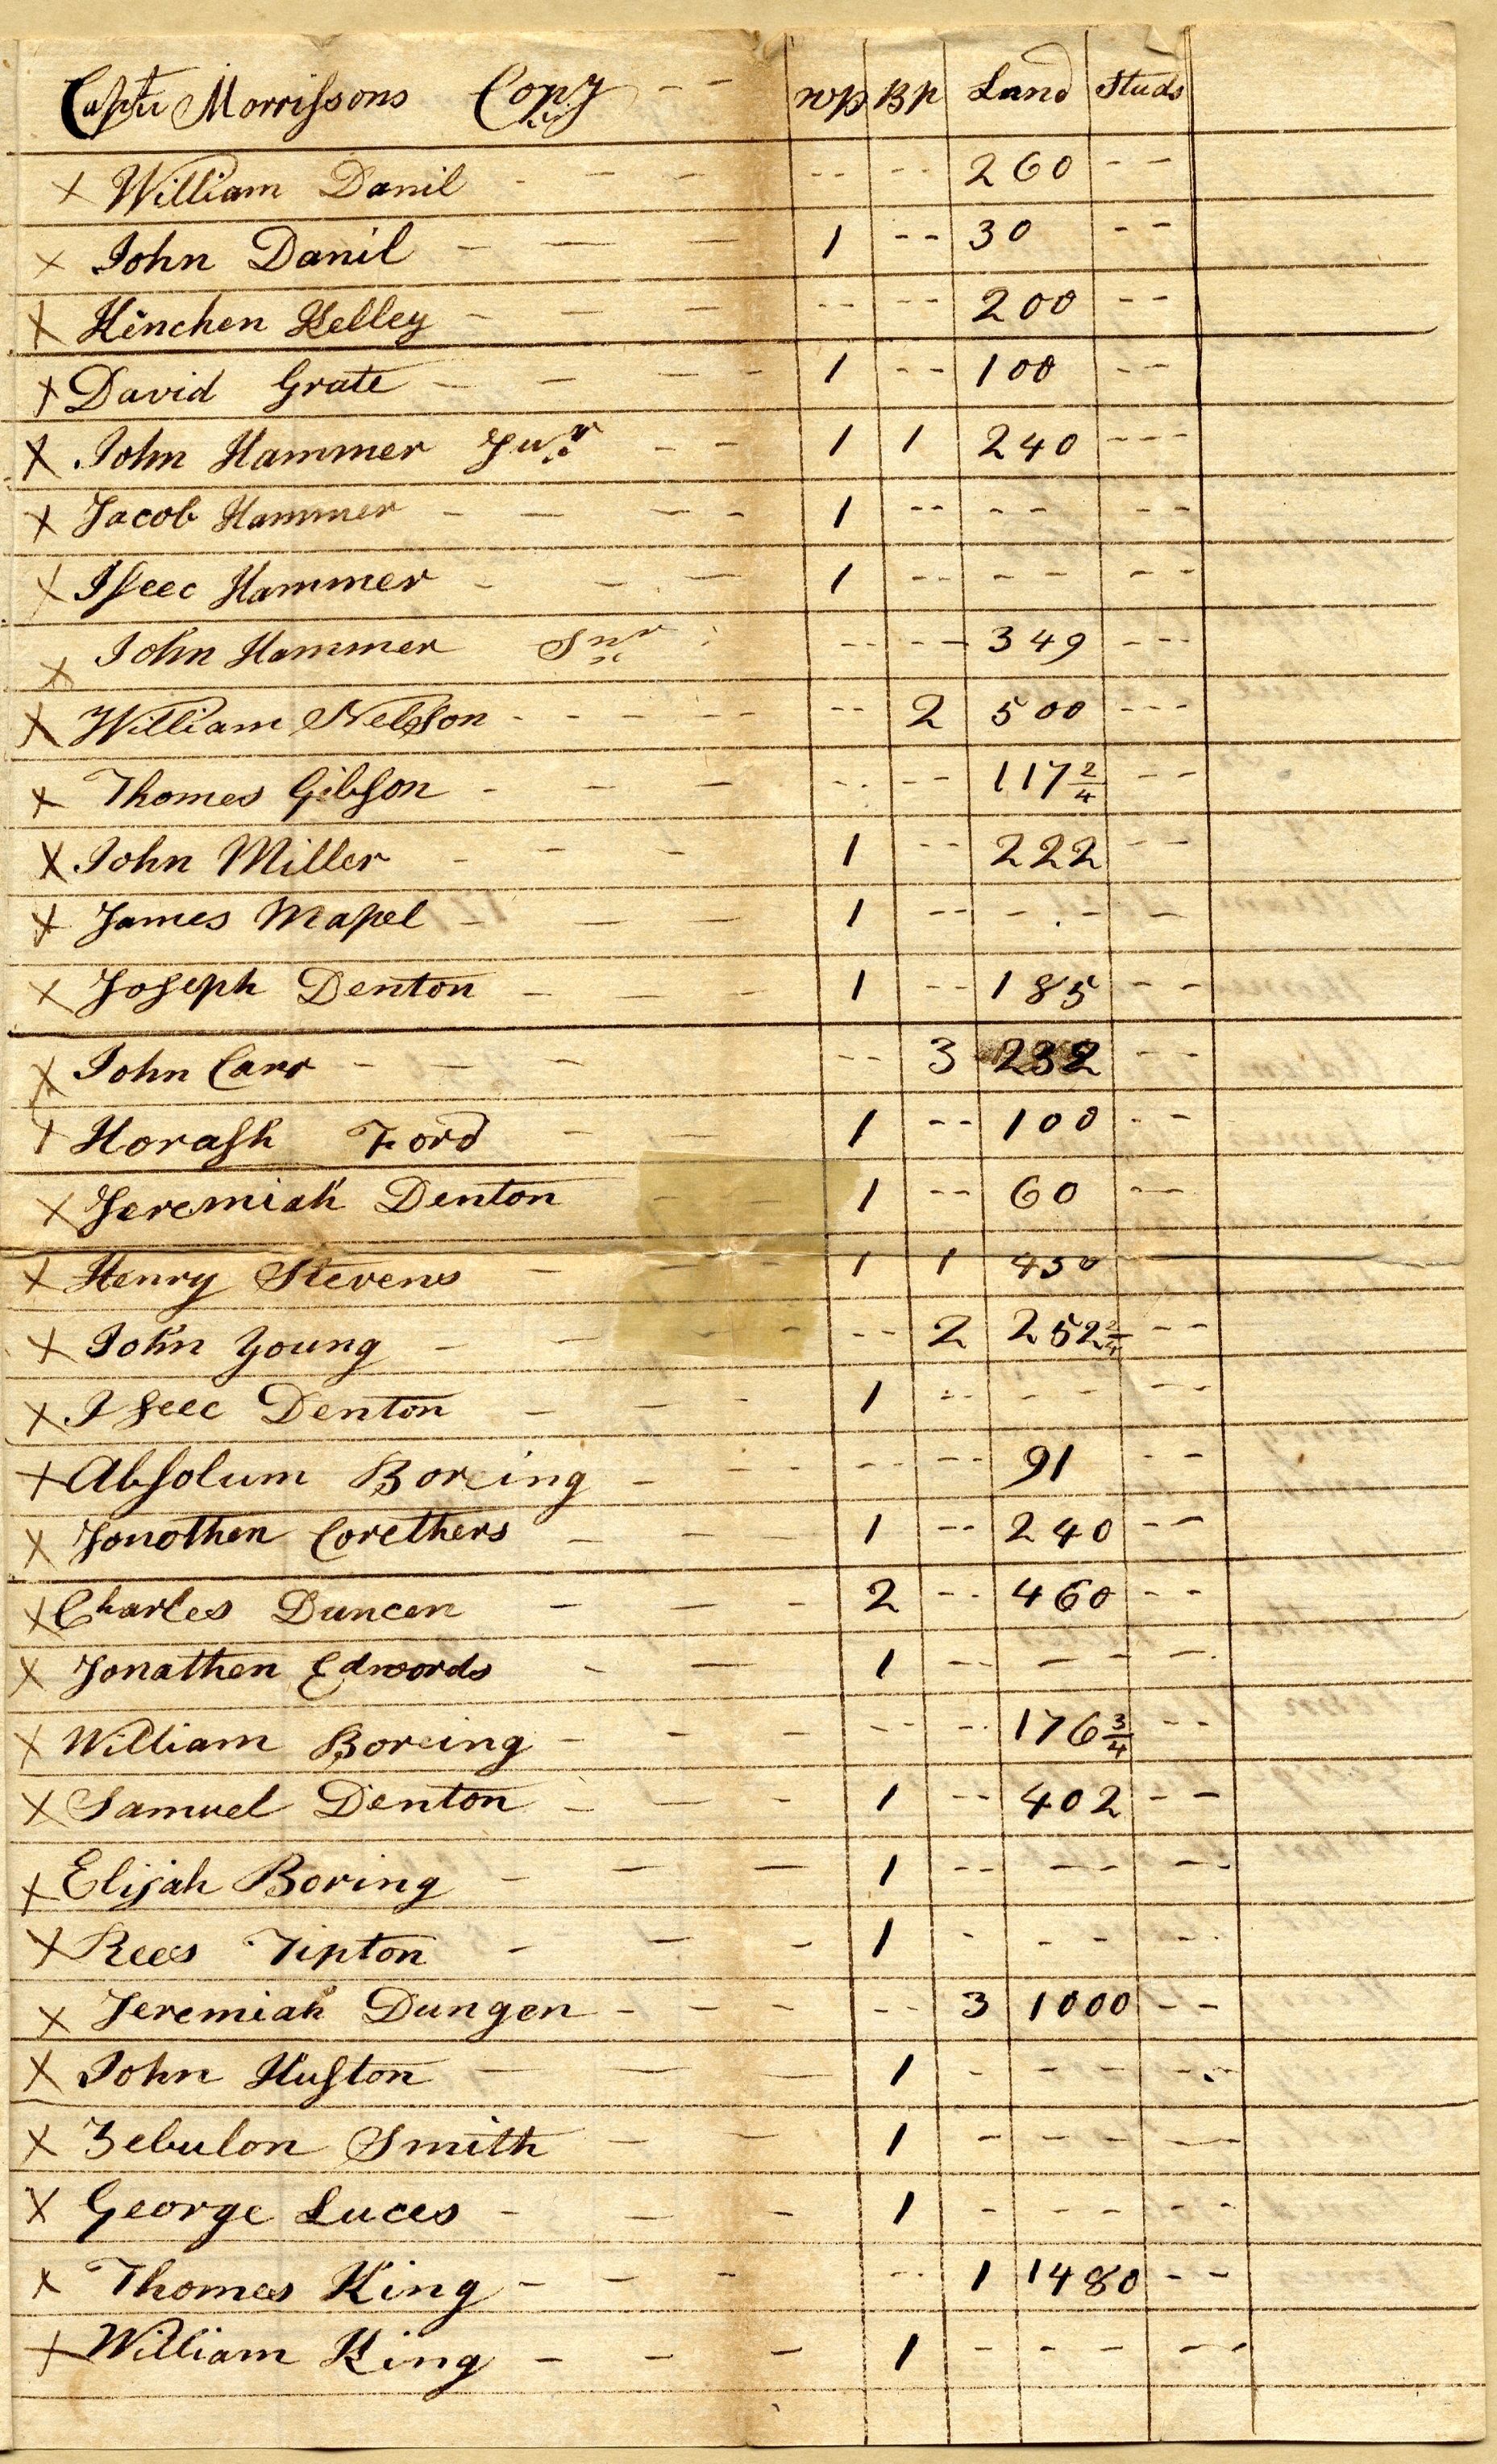 Captn Morrissons Copy - - wp Bp Land Studs
x William Danil - - - -- -- 260 --
x John Danil - - - 1 -- 30 --
x Kinchen Kelley - - - -- -- 200 --
x David Grate - - - - 1 -- 100 --
x John Hammer Junr - - 1 1 240 ---
x Jacob Hammer - - - - 1 -- -- --
x Iseec Hammer - - - 1 -- -- --
x John Hammer Snr -- -- 349 ---
x William Nelson - - - - - -- 2 500 ---
x Thomes Gibson - - - -- -- 117 2/4 --
x John Miller - - - 1 -- 222 --
x James Mapel - - - 1 -- - - -
x Joseph Denton - - - 1 -- 185 --
x John Carr - - - -- 3 232 --
x Horash Ford - - 1 -- 100 --
x Jeremiah Denton - - 1 -- 60 --
x Henry Stevens - - - 1 1 450
x John Young - - - - -- 2 252 2/4 --
x Iseec Denton - - - 1 -- -- --
x Absolum Boreing - - - -- -- 91 --
x Jonothen Corethers - - - 1 -- 240 --
x Charles Duncen - - - 2 -- 460 --
x Jonathen Edwords - - 1 -- -- --
x William Boreing - - - -- -- 176 3/4 --
x Samuel Denton - - - 1 -- 402 --
x Elijah Boring - - - 1 -- -- --
x Rees Tipton - - - 1 - -- --
x Jeremiah Dungen - - - -- 3 1000 --
x John Huston - - - 1 - -- --
x Zebulon Smith - - 1 - -- --
x George Luces - - - 1 - -- --
x Thomas King - - - -- 1 1480 --
x William King - - - 1 - -- --